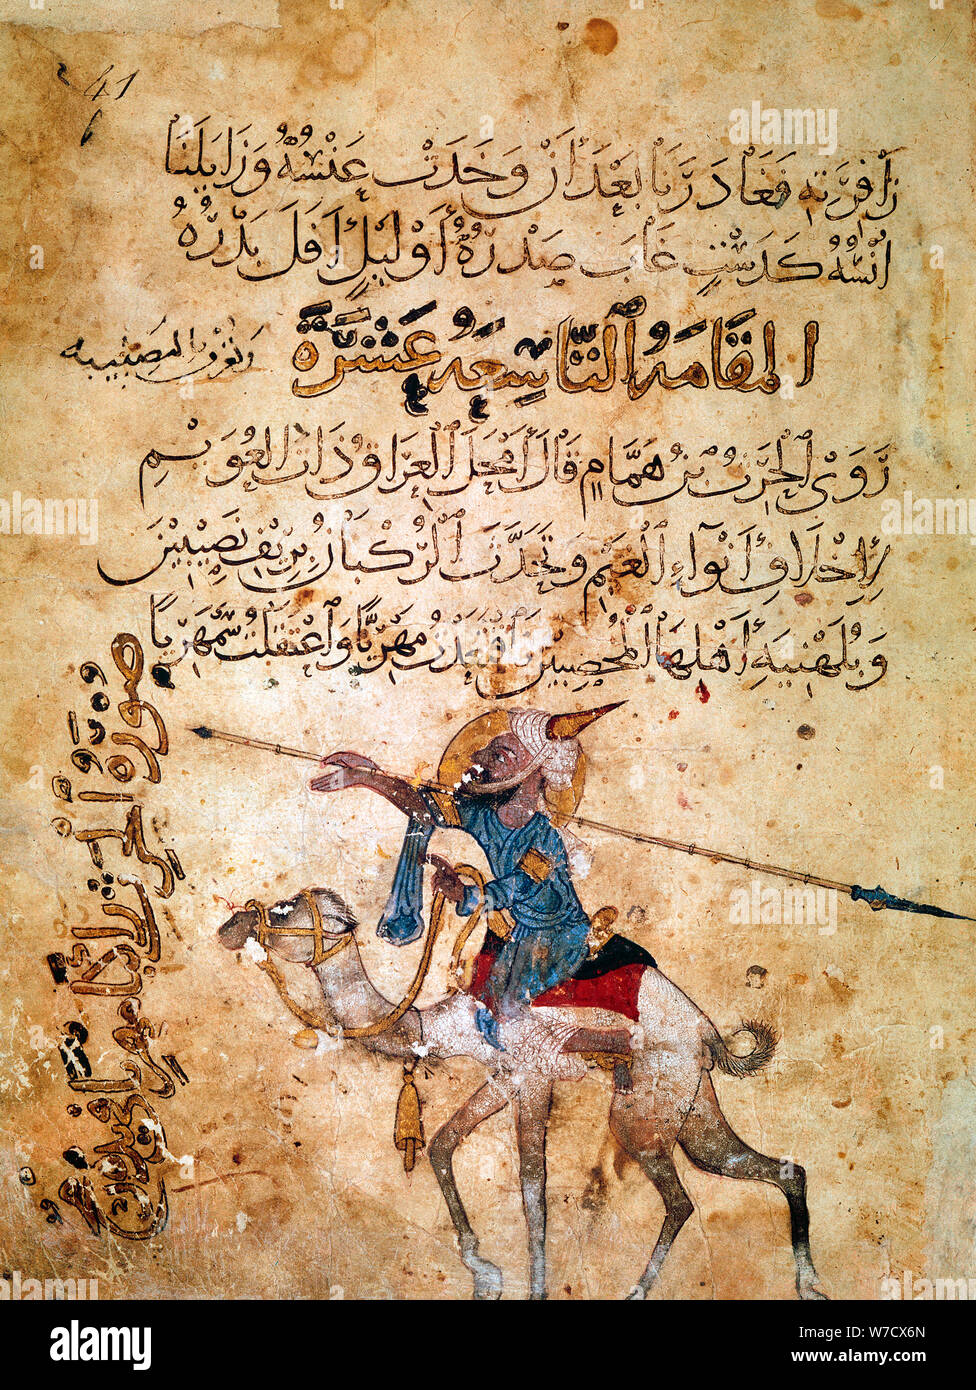 41
زَافِرَتِهِ فَغَادَرَنَا بَعْدَ أَنْ وَخَدَتْ عَنْسُهُ وَزَايَلَنَا
أُنْسُهُ كَدَسْتٍ غَابَ صَدْرُهُ أَوْ لَيْلٍ أَفَلَ بَدْرُهُ
المَقَامَةُ التَّاسِعَةُ عَشْرَةَ
وتعرف بالنصيبيه
رَوَى الحَرِثُ بْنُ هَمَّامٍ قَالَ أَمْحَلَ العِرَاقُ ذَاتَ العُوَيْمِ
لِإِخْلَافِ أَنْوَاءِ الغَيْمِ وَتَحَدَّثَ الرُّكْبَانُ بِرِيفِ نَصِيبِينَ
وَبُلَهْنِيَةِ أَهْلِهَا المُخْصِبِينَ فَاقْتَعَدْتُ مَهْرِيًّا وَاعْتَقَلْتُ سَمْهَرِيًّا
صورة الحرث راكبا مهريا وفي يده رمح
alamy
Image ID: W7CX6N
www.alamy.com